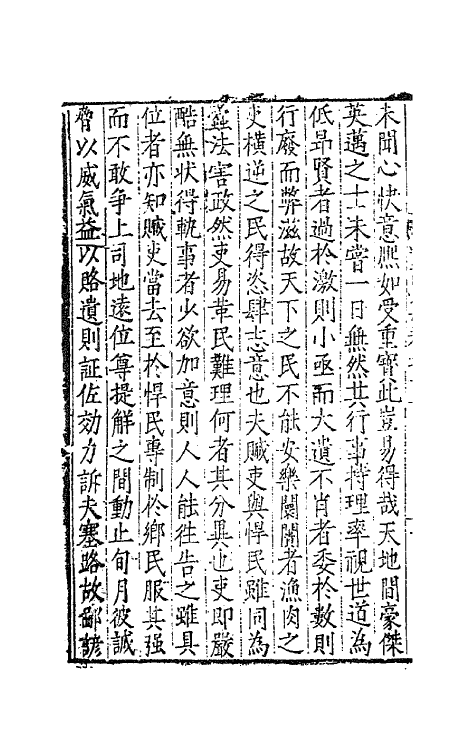 未聞心快意熈如受重寳此豈易得哉天地間豪傑
英邁之士未嘗一日無然其行事持理率視世道為
低昂賢者過於激則小亟而大遺不肖者委於數則
行廢而弊滋故天下之民不能安樂闤闠者漁肉之
吏橫逆之民得恣肆志意也夫贓吏與悍民雖同為
蠧法害政然吏易革民難理何者其分異也吏即嚴
酷無狀得軌事者少欲加意則人人能徃告之雖具
位者亦知贓吏當去至於悍民專制於鄉民服其强
而不敢争上司地遠位尊提解之間動止旬月彼誠
脅以威氣益以賂遺則証佐効力訴夫塞路故鄙諺